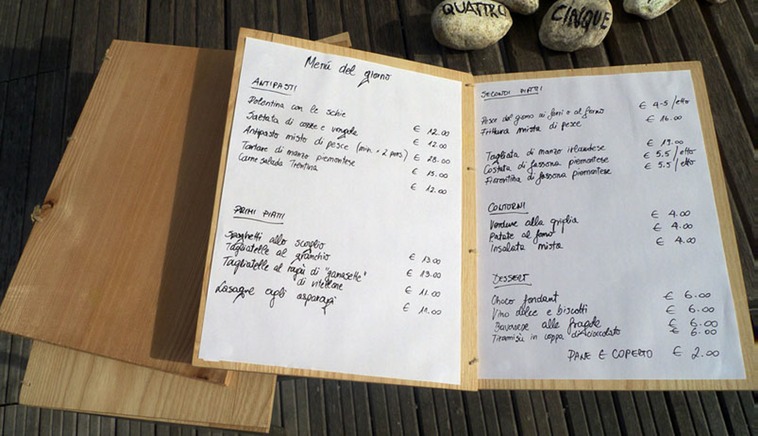 QUATTRO
CINQUE
Menù del giorno
ANTIPASTI
Polentina con le schie € 12.00
Saltata di cozze e vongole € 12.00
Antipasto misto di pesce (min. x 2 pers.) € 28.00
Tartare di manzo piemontese € 15.00
Carne salada Trentina € 12.00
PRIMI PIATTI
Spaghetti allo scoglio € 13.00
Tagliatelle al granchio € 13.00
Tagliatelle al ragù di "ganassette"
di vitellone € 11.00
Lasagne agli asparagi € 11.00
SECONDI PIATTI
Pesce del giorno ai ferri o al forno € 4-5/etto
Frittura mista di pesce € 16.00
Tagliata di manzo irlandese € 19.00
Costata di fassona piemontese € 5.5/etto
Fiorentina di fassona piemontese € 5.5/etto
CONTORNI
Verdure alla griglia € 4.00
Patate al forno € 4.00
Insalata mista € 4.00
DESSERT
Choco fondant € 6.00
Vino dolce e biscotti € 6.00
Bavarese alle fragole € 6.00
Tiramisù in coppa di cioccolato € 6.00
PANE E COPERTO € 2.00